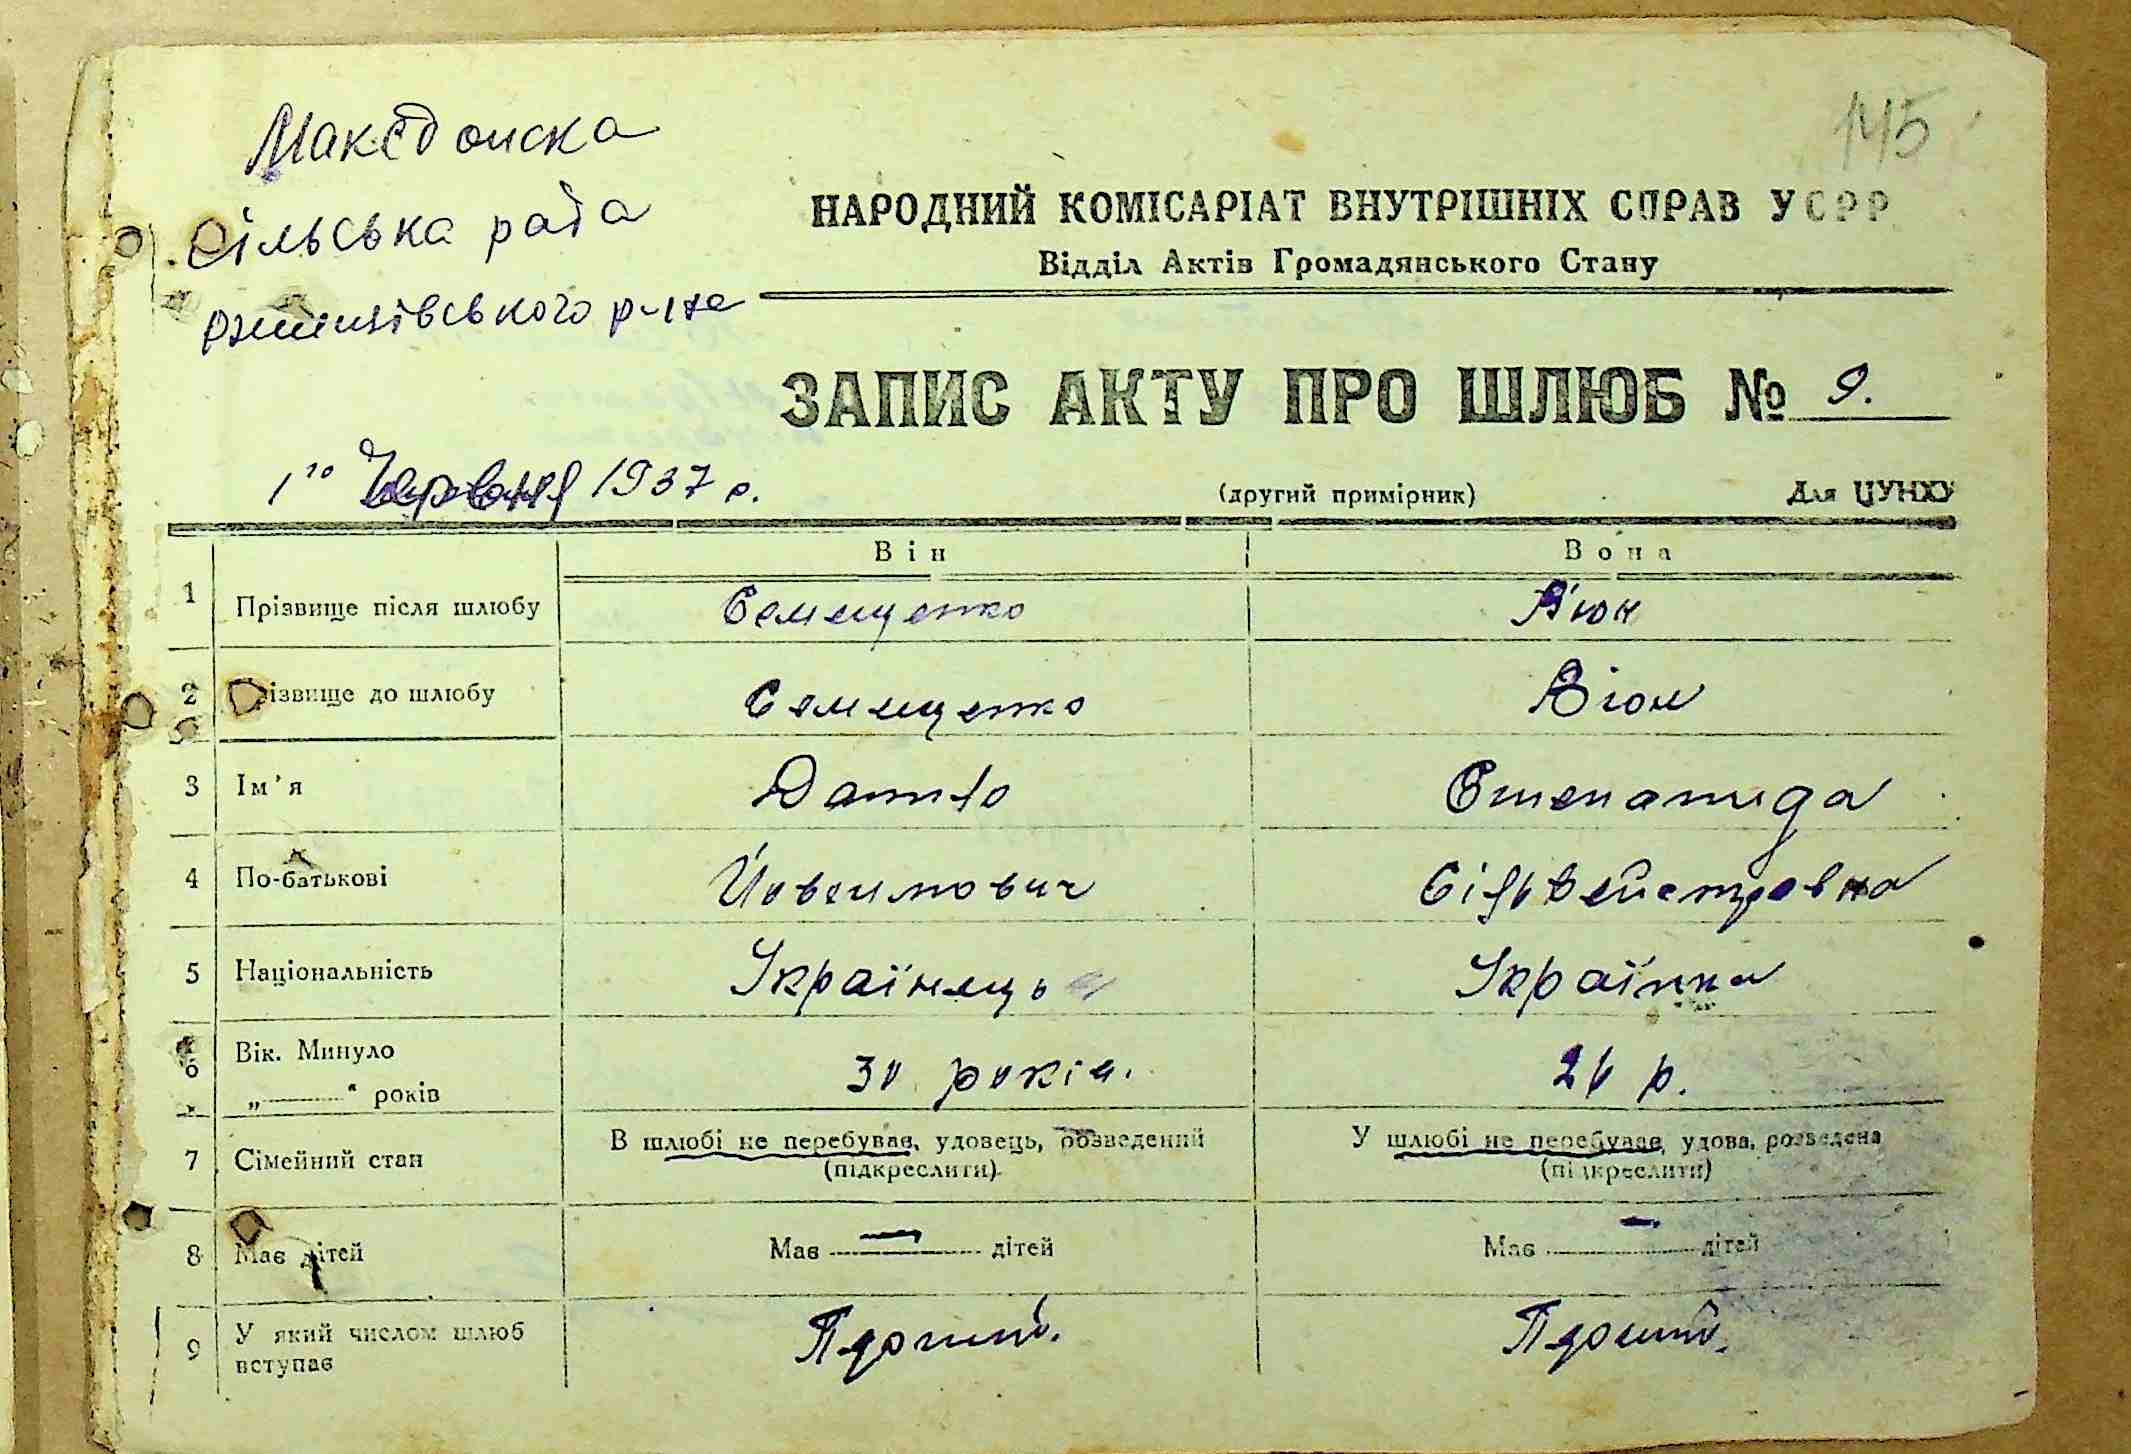 145
Македонска
сільська рада
НАРОДНИЙ КОМІСАРІАТ ВНУТРІШНІХ СПРАВ УСРР
Відділ Актів Громадянського Стану
ЗАПИС АКТУ ПРО ШЛЮБ № 9.
1го Червня 1937 р.
(другий примірник) Для ЦУНХУ
Він Вона
1 Прізвище після шлюбу Семещенко В'юн
2 Прізвище до шлюбу Семещенко Вюн
3 Ім'я Данило
4 По-батькові Йовсимович Сільвейстровна
5 Національність Українець Українка
6 Вік. Минуло
„———“ років 30 років. 26 р.
7 Сімейний стан В шлюбі не перебував, удовець, розведений У шлюбі не перебуває, удова, розведена
(підкреслити) (підкреслити)
8 Має дітей Має — дітей Має — дітей
9 У який числом шлюб
вступає Перший. Перший.